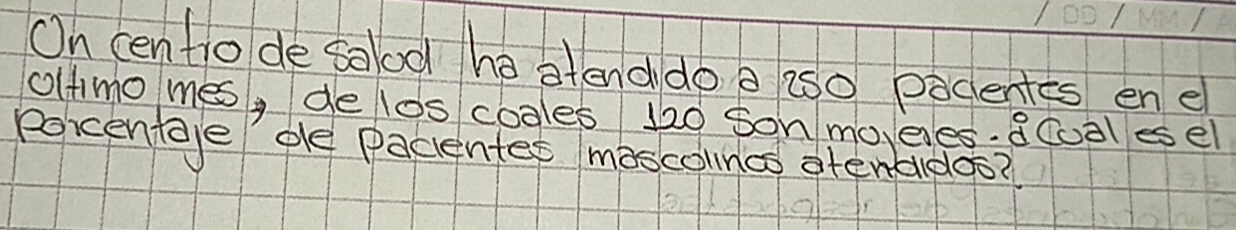 / DD / MM / A
Un centro de salud ha atendido a 250 pacientes en el
ultimo mes, de los cuales 120 son mujeres. ¿Cual es el
Porcentaje de pacientes masculinos atendidos?